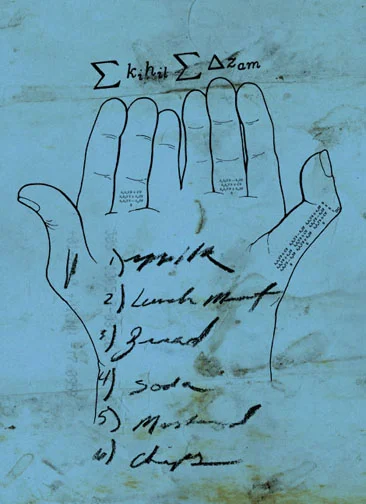 ∑ kᵢhᵢₗ ∑ Δzₐₘ
1) milk
2) Lunch Meat
3) Bread
4) Soda
5) Mustard
6) Chips